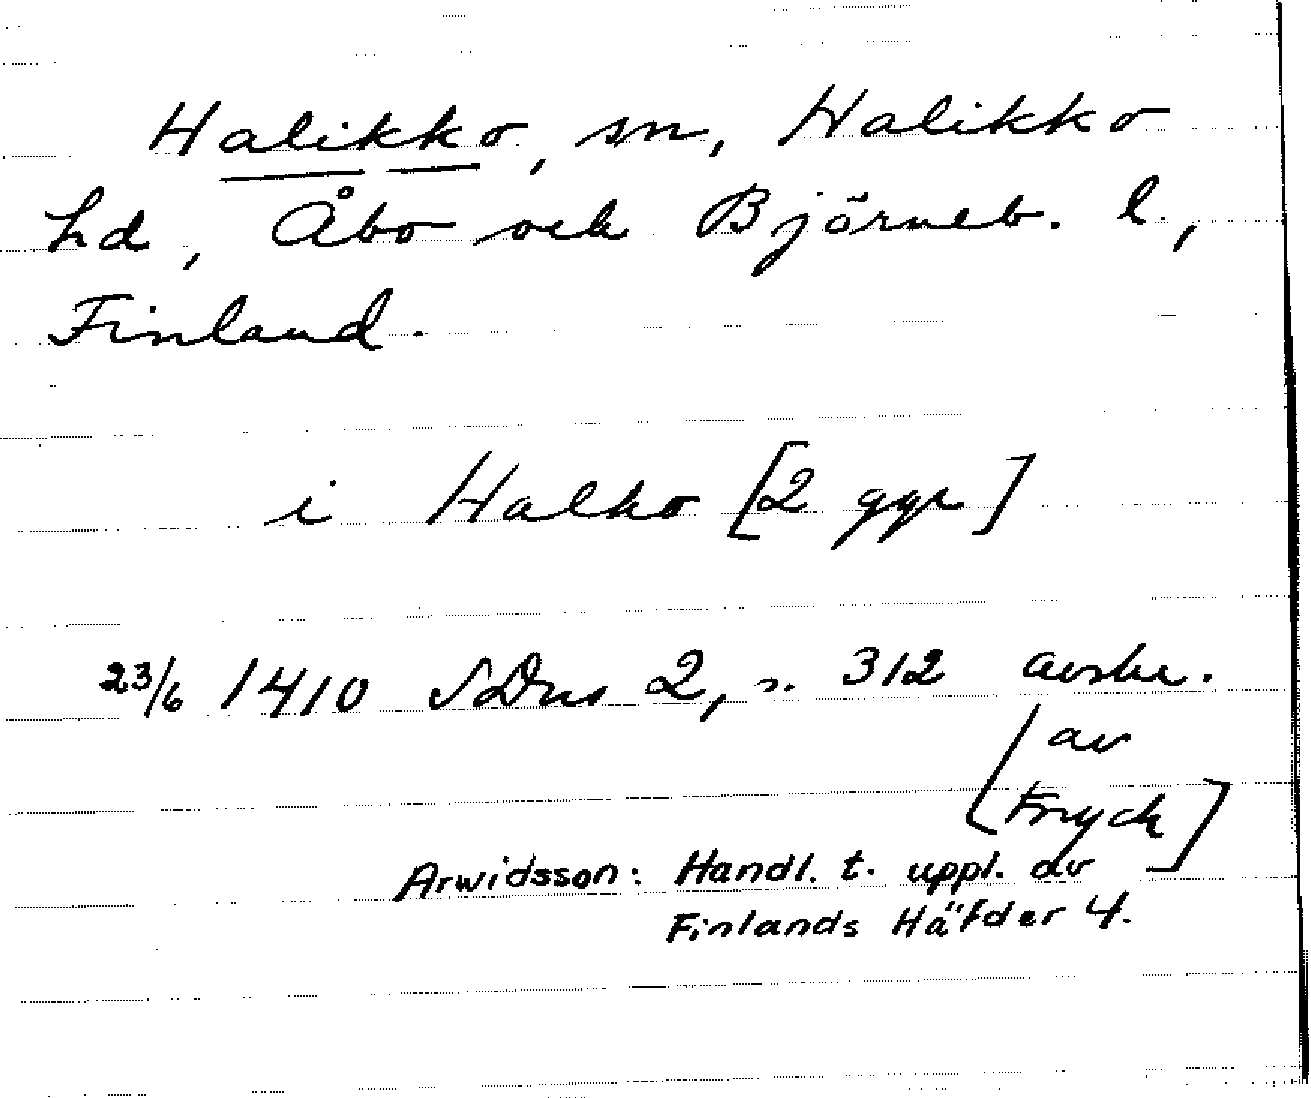 Halikko, sn, Halikko
hd, Åbo och Björneb. l,
Finland.
i Halko [2 ggr]
23/6 1410 SDns 2, s. 312 avskr.
[av
tryck]
Arwidsson: Handl. t. uppl. av
Finlands Häfder 4.